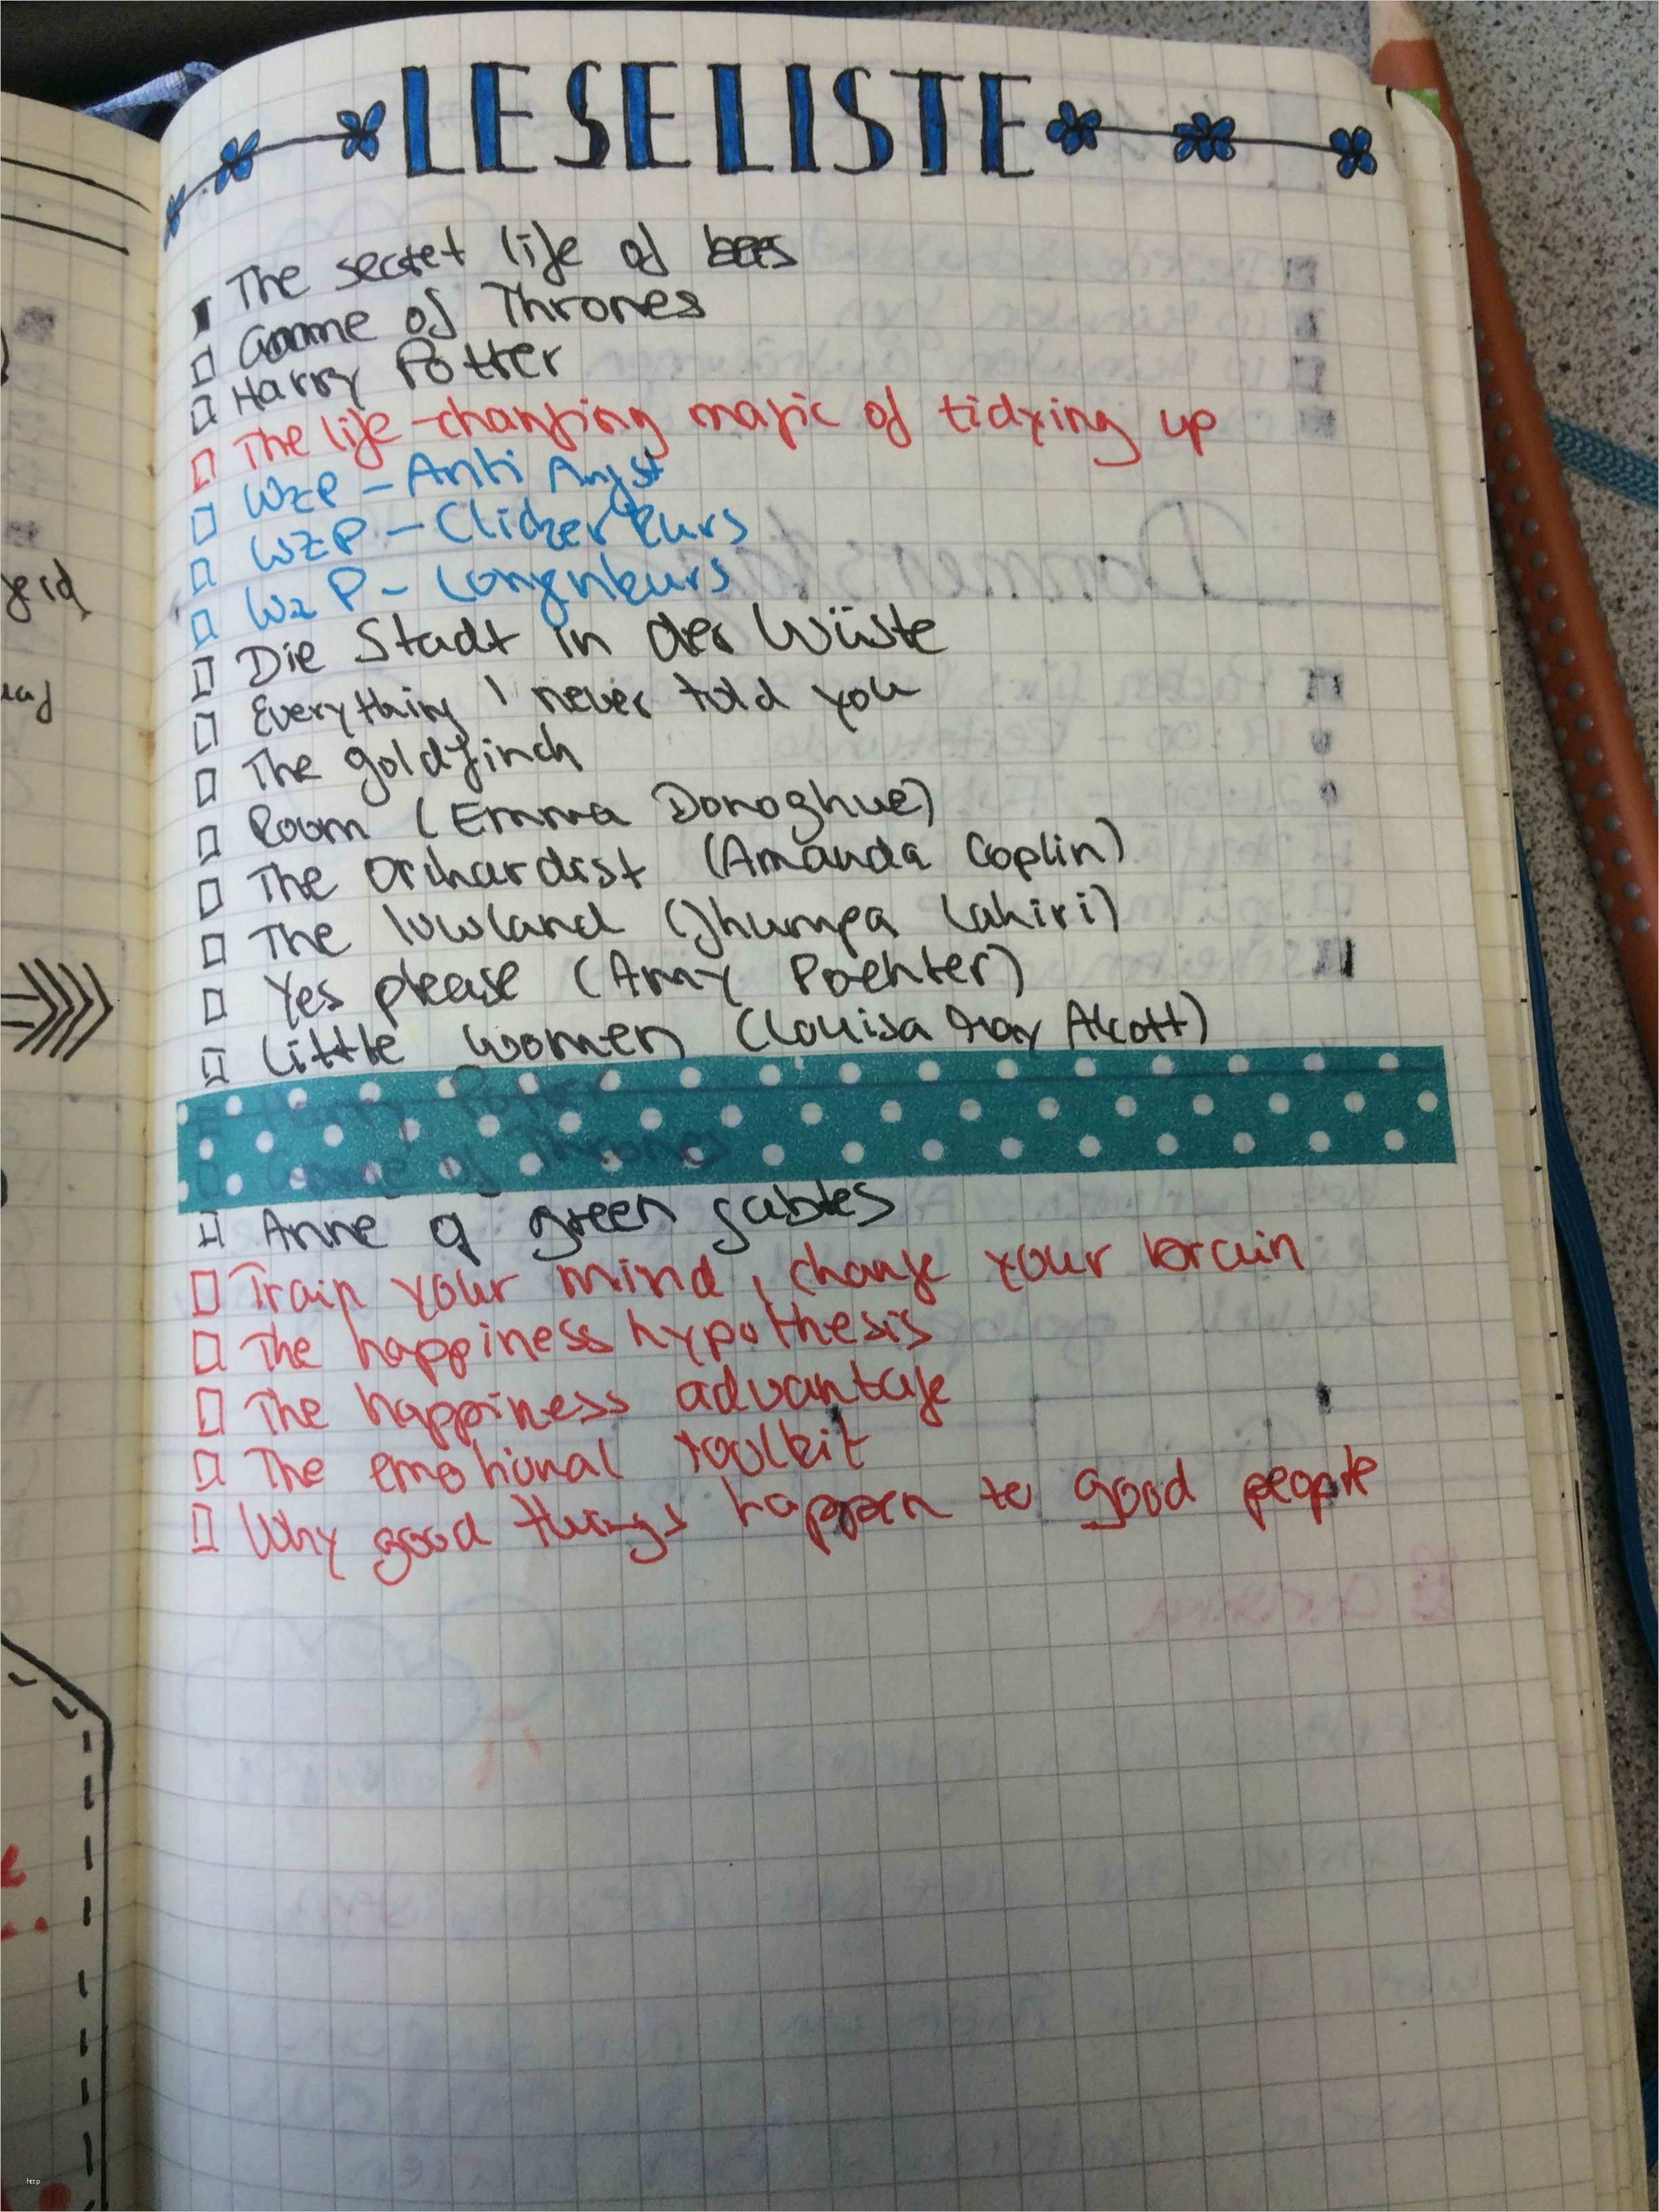 LESELISTE
The secret life of bees
Game of Thrones
Harry Potter
The life-changing magic of tidying up
WZP - Anti Angst
WZP - Clickerkurs
WZP - Longenkurs
Die Stadt in der Wüste
Everything I never told you
The goldfinch
Room (Emma Donoghue)
The Orchardist (Amanda Coplin)
The lowland (Jhumpa Lahiri)
Yes please (Amy Poehler)
Little women (Louisa May Alcott)
Harry Potter
Game of Thrones
Anne of green gables
Train your mind, change your brain
The happiness hypothesis
The happiness advantage
The emotional toolkit
Why good things happen to good people
http